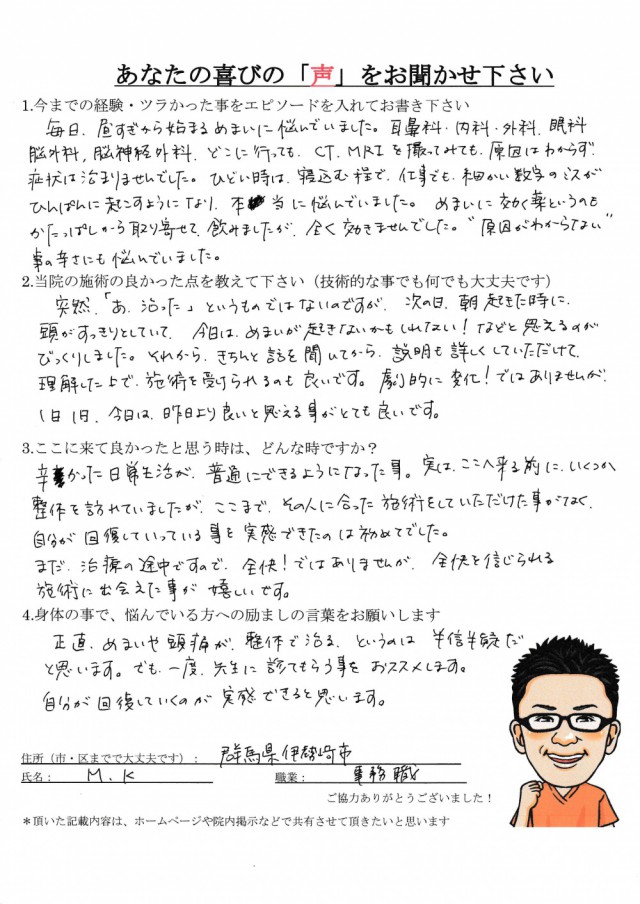 あなたの喜びの「声」をお聞かせ下さい
1.今までの経験・ツラかった事をエピソードを入れてお書き下さい
毎日、昼すぎから始まるめまいに悩んでいました。耳鼻科・内科・外科、眼科
脳外科，脳神経外科、どこに行っても、CT、MRIを撮ってみても、原因はわからず、
症状は治まりませんでした。ひどい時は、寝込む程で、仕事でも、細かい数字のミスが
ひんぱんに起こすようになり、本当に悩んでいました。めまいに効く薬というのも
かたっぱしから取り寄せて、飲みましたが、全く効きませんでした。"原因がわからない"
事の辛さにも悩んでいました。
2.当院の施術の良かった点を教えて下さい（技術的な事でも何でも大丈夫です）
突然、「あ、治った」というものではないのですが、次の日、朝起きた時に、
頭がすっきりとしていて、今日は、めまいが起きないかもしれない！などと思えるのが
びっくりしました。それから、きちんと話を聞いてから、説明も詳しくしていただけて、
理解した上で、施術を受けられるのも良いです。劇的に変化！ではありませんが、
1日1日、今日は、昨日より良いと思える事がとても良いです。
3.ここに来て良かったと思う時は、どんな時ですか？
辛かった日常生活が、普通にできるようになった事。実は、ここへ来る前に、いくつか
整体を訪れていましたが、ここまで、その人に合った施術をしていただけた事がなく、
自分が回復していっている事を実感できたのは初めてでした。
まだ、治療の途中ですので、全快！ではありませんが、全快を信じられる
施術に出会えた事が嬉しいです。
4.身体の事で、悩んでいる方への励ましの言葉をお願いします
正直、めまいや頭痛が、整体で治る、というのは半信半疑だ
と思います。でも、一度、先生に診てもらう事をおススメします。
自分が回復していくのが実感できると思います。
住所（市・区までで大丈夫です）： 群馬県伊勢崎市
氏名： M.K 職業： 事務職
ご協力ありがとうございました！
＊頂いた記載内容は、ホームページや院内掲示などで共有させて頂きたいと思います